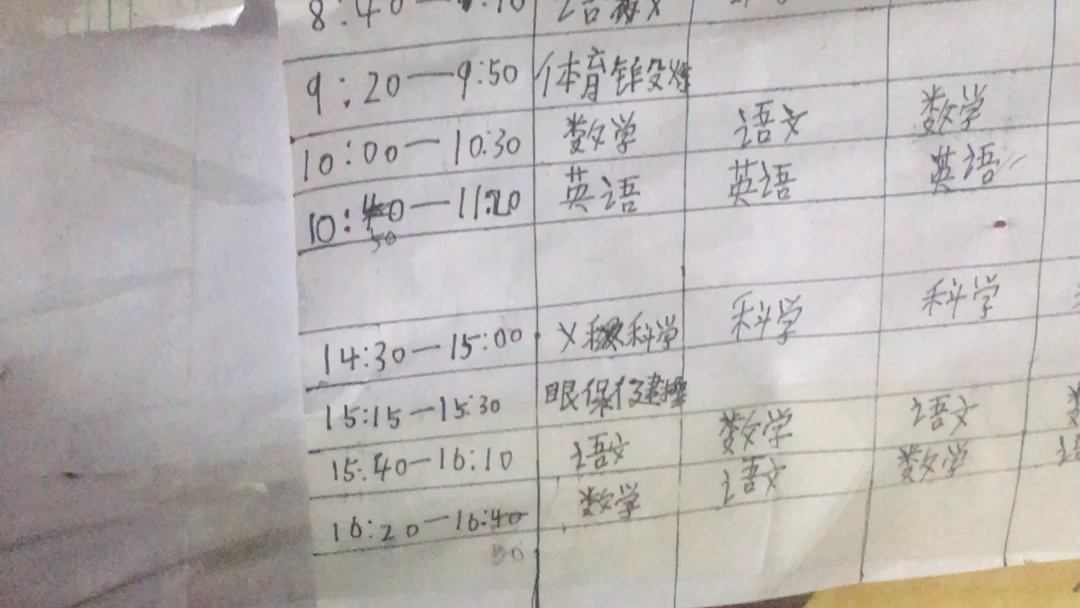 8:40
9:20—9:50 体育锻炼
10:00—10:30 数学 语文 数学
10:40—11:20 英语 英语 英语
50
14:30—15:00 科学 科学 科学
15:15—15:30 眼保健操
15:40—16:10 语文 数学 语文
16:20—16:40 数学 语文 数学
50